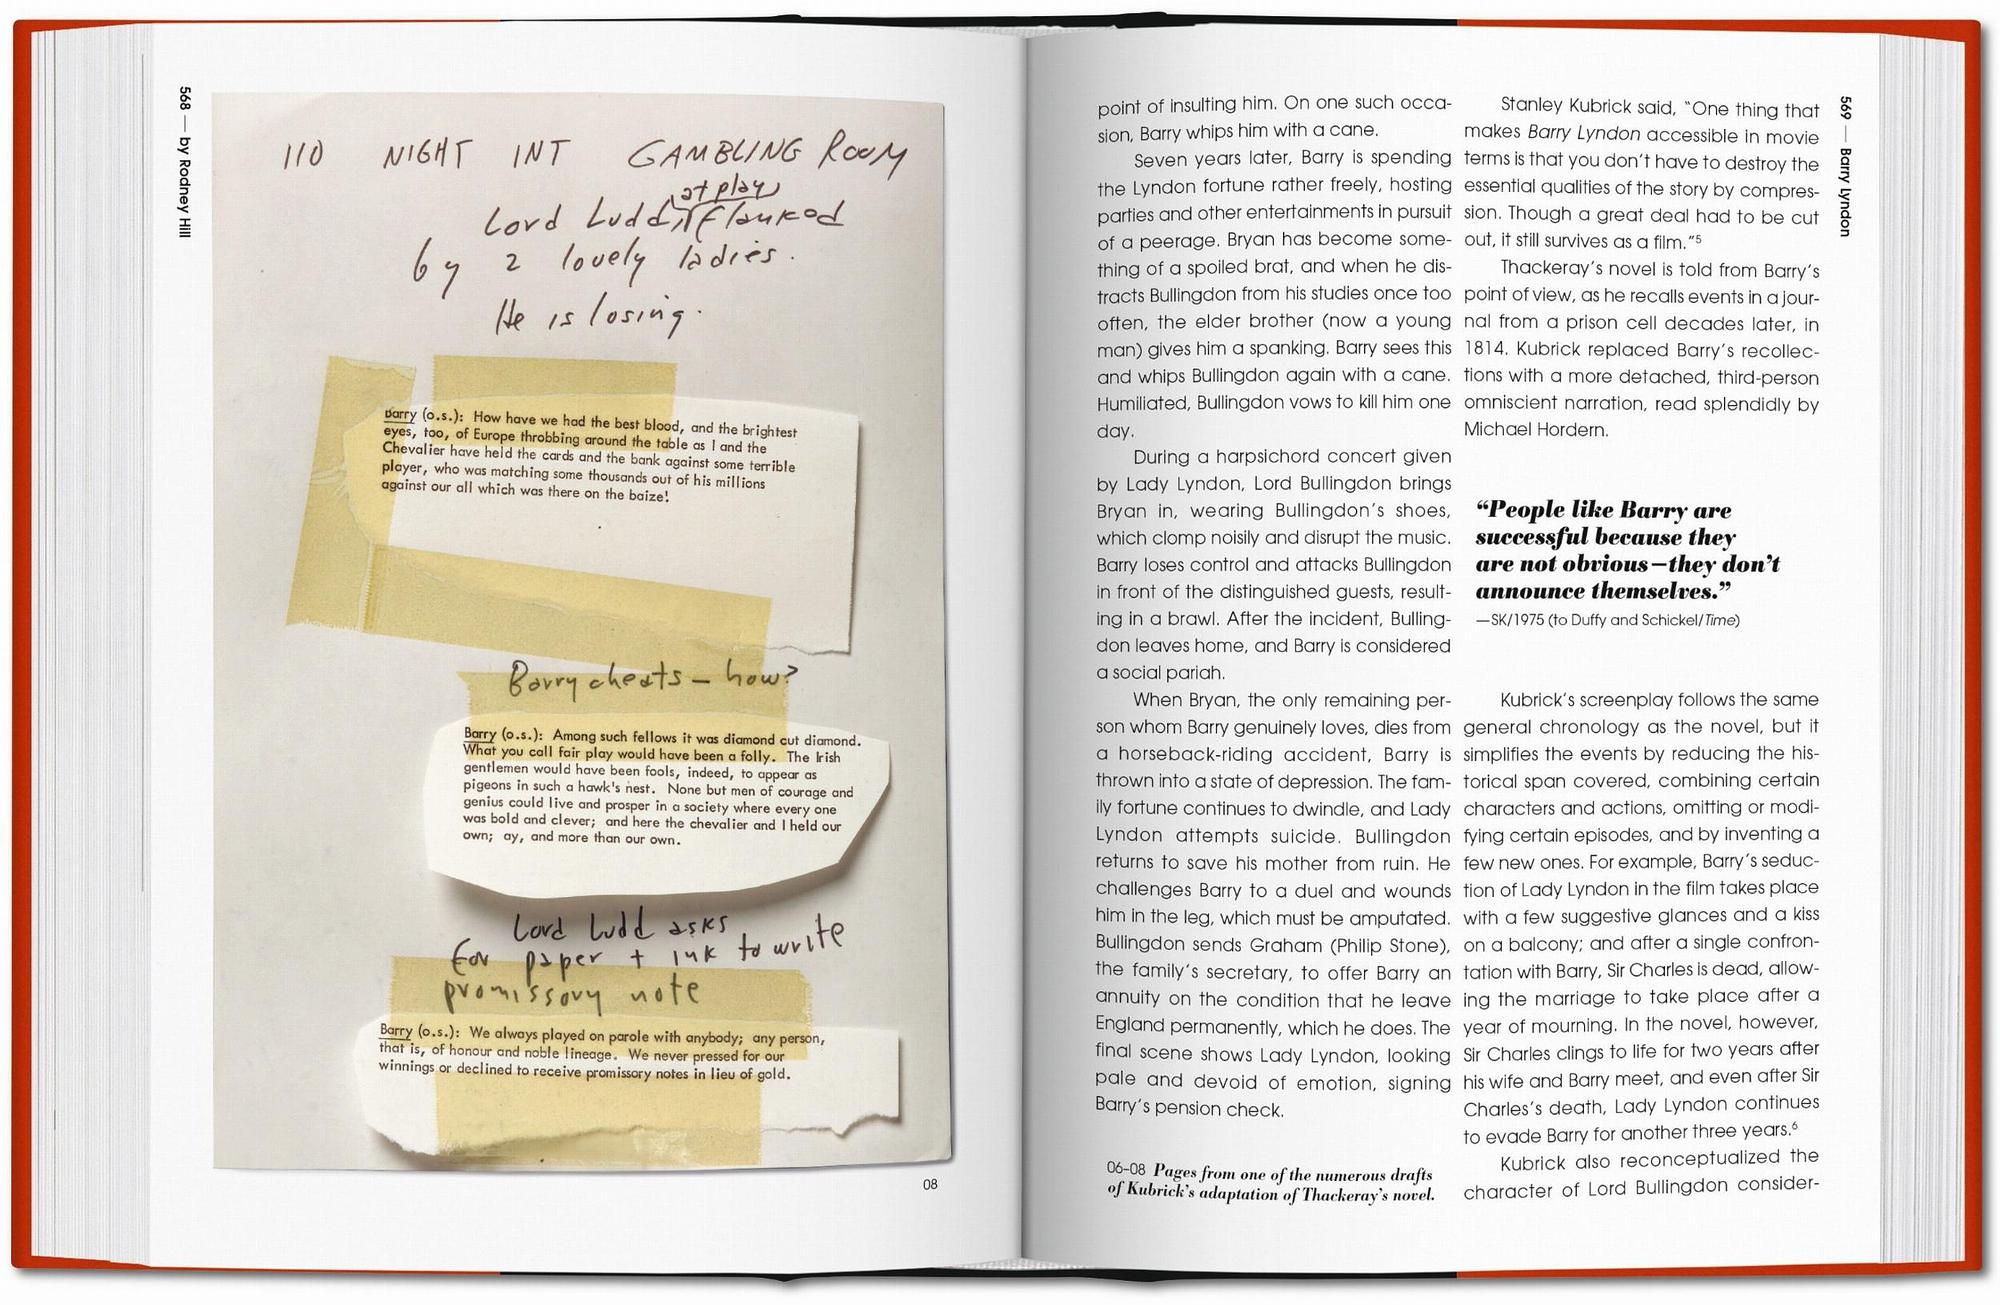 568 — by Rodney Hill
110 NIGHT INT GAMBLING ROOM
at play
Lord Ludd, flanked
by 2 lovely ladies.
He is losing.
Barry (o.s.): How have we had the best blood, and the brightest
eyes, too, of Europe throbbing around the table as I and the
Chevalier have held the cards and the bank against some terrible
player, who was matching some thousands out of his millions
against our all which was there on the baize!
Barry cheats — how?
Barry (o.s.): Among such fellows it was diamond cut diamond.
What you call fair play would have been a folly. The Irish
gentlemen would have been fools, indeed, to appear as
pigeons in such a hawk's nest. None but men of courage and
genius could live and prosper in a society where every one
was bold and clever; and here the chevalier and I held our
own; ay, and more than our own.
Lord Ludd asks
for paper + ink to write
promissory note
Barry (o.s.): We always played on parole with anybody; any person,
that is, of honour and noble lineage. We never pressed for our
winnings or declined to receive promissory notes in lieu of gold.
08
point of insulting him. On one such occa-
sion, Barry whips him with a cane.
Seven years later, Barry is spending
the Lyndon fortune rather freely, hosting
parties and other entertainments in pursuit
of a peerage. Bryan has become some-
thing of a spoiled brat, and when he dis-
tracts Bullingdon from his studies once too
often, the elder brother (now a young
man) gives him a spanking. Barry sees this
and whips Bullingdon again with a cane.
Humiliated, Bullingdon vows to kill him one
day.
During a harpsichord concert given
by Lady Lyndon, Lord Bullingdon brings
Bryan in, wearing Bullingdon's shoes,
which clomp noisily and disrupt the music.
Barry loses control and attacks Bullingdon
in front of the distinguished guests, result-
ing in a brawl. After the incident, Bulling-
don leaves home, and Barry is considered
a social pariah.
When Bryan, the only remaining per-
son whom Barry genuinely loves, dies from
a horseback-riding accident, Barry is
thrown into a state of depression. The fam-
ily fortune continues to dwindle, and Lady
Lyndon attempts suicide. Bullingdon
returns to save his mother from ruin. He
challenges Barry to a duel and wounds
him in the leg, which must be amputated.
Bullingdon sends Graham (Philip Stone),
the family's secretary, to offer Barry an
annuity on the condition that he leave
England permanently, which he does. The
final scene shows Lady Lyndon, looking
pale and devoid of emotion, signing
Barry's pension check.
06–08 Pages from one of the numerous drafts
of Kubrick's adaptation of Thackeray's novel.
Stanley Kubrick said, “One thing that
makes Barry Lyndon accessible in movie
terms is that you don't have to destroy the
essential qualities of the story by compres-
sion. Though a great deal had to be cut
out, it still survives as a film.”⁵
Thackeray's novel is told from Barry's
point of view, as he recalls events in a jour-
nal from a prison cell decades later, in
1814. Kubrick replaced Barry's recollec-
tions with a more detached, third-person
omniscient narration, read splendidly by
Michael Hordern.
“People like Barry are
successful because they
are not obvious—they don't
announce themselves.”
—SK/1975 (to Duffy and Schickel/Time)
Kubrick's screenplay follows the same
general chronology as the novel, but it
simplifies the events by reducing the his-
torical span covered, combining certain
characters and actions, omitting or modi-
fying certain episodes, and by inventing a
few new ones. For example, Barry's seduc-
tion of Lady Lyndon in the film takes place
with a few suggestive glances and a kiss
on a balcony; and after a single confron-
tation with Barry, Sir Charles is dead, allow-
ing the marriage to take place after a
year of mourning. In the novel, however,
Sir Charles clings to life for two years after
his wife and Barry meet, and even after Sir
Charles's death, Lady Lyndon continues
to evade Barry for another three years.⁶
Kubrick also reconceptualized the
character of Lord Bullingdon consider-
569 — Barry Lyndon